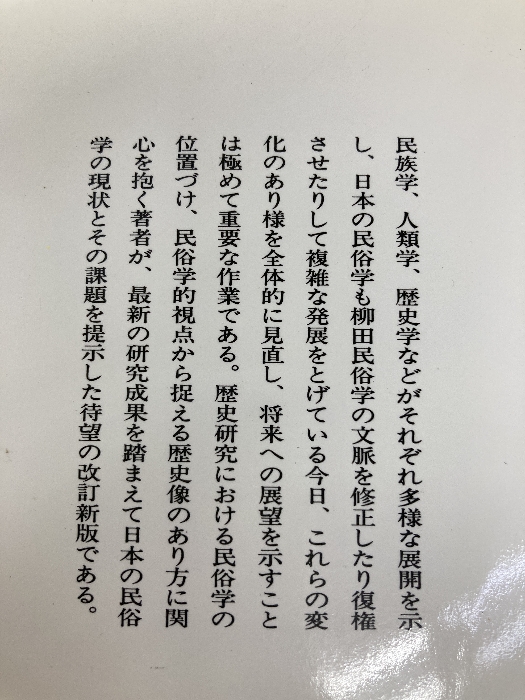 民族学、人類学、歴史学などがそれぞれ多様な展開を示
し、日本の民俗学も柳田民俗学の文脈を修正したり復権
させたりして複雑な発展をとげている今日、これらの変
化のあり様を全体的に見直し、将来への展望を示すこと
は極めて重要な作業である。歴史研究における民俗学の
位置づけ、民俗学的視点から捉える歴史像のあり方に関
心を抱く著者が、最新の研究成果を踏まえて日本の民俗
学の現状とその課題を提示した待望の改訂新版である。